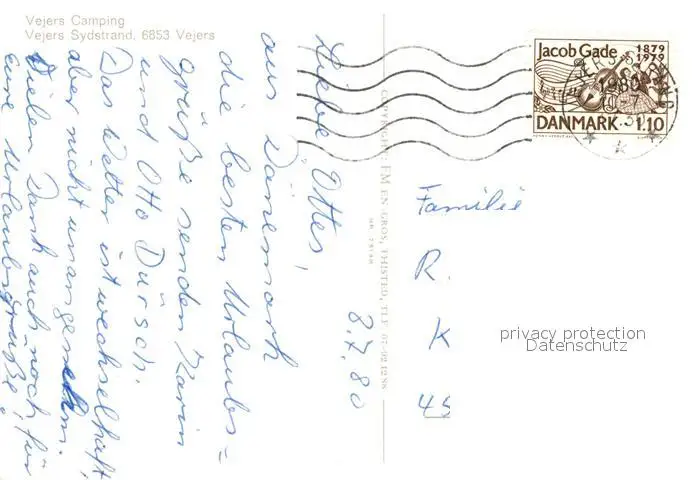 Vejers Camping
Vejers Sydstrand, 6853 Vejers
8.7.80
Liebe Ottes!
aus Dänemark
die besten Urlaubs=
grüße senden Karin
und Otto Dürsch.
Das Wetter ist wechselhaft,
aber nicht unangenehm.
Vielen Dank auch noch für
eure Urlaubsgrüße!
COPYRIGHT: FM EN-GROS, THISTED, TLF.
Jacob Gade 1879
1979
DANMARK 1.10
1980
Familie
R.
K
45
privacy protection
Datenschutz